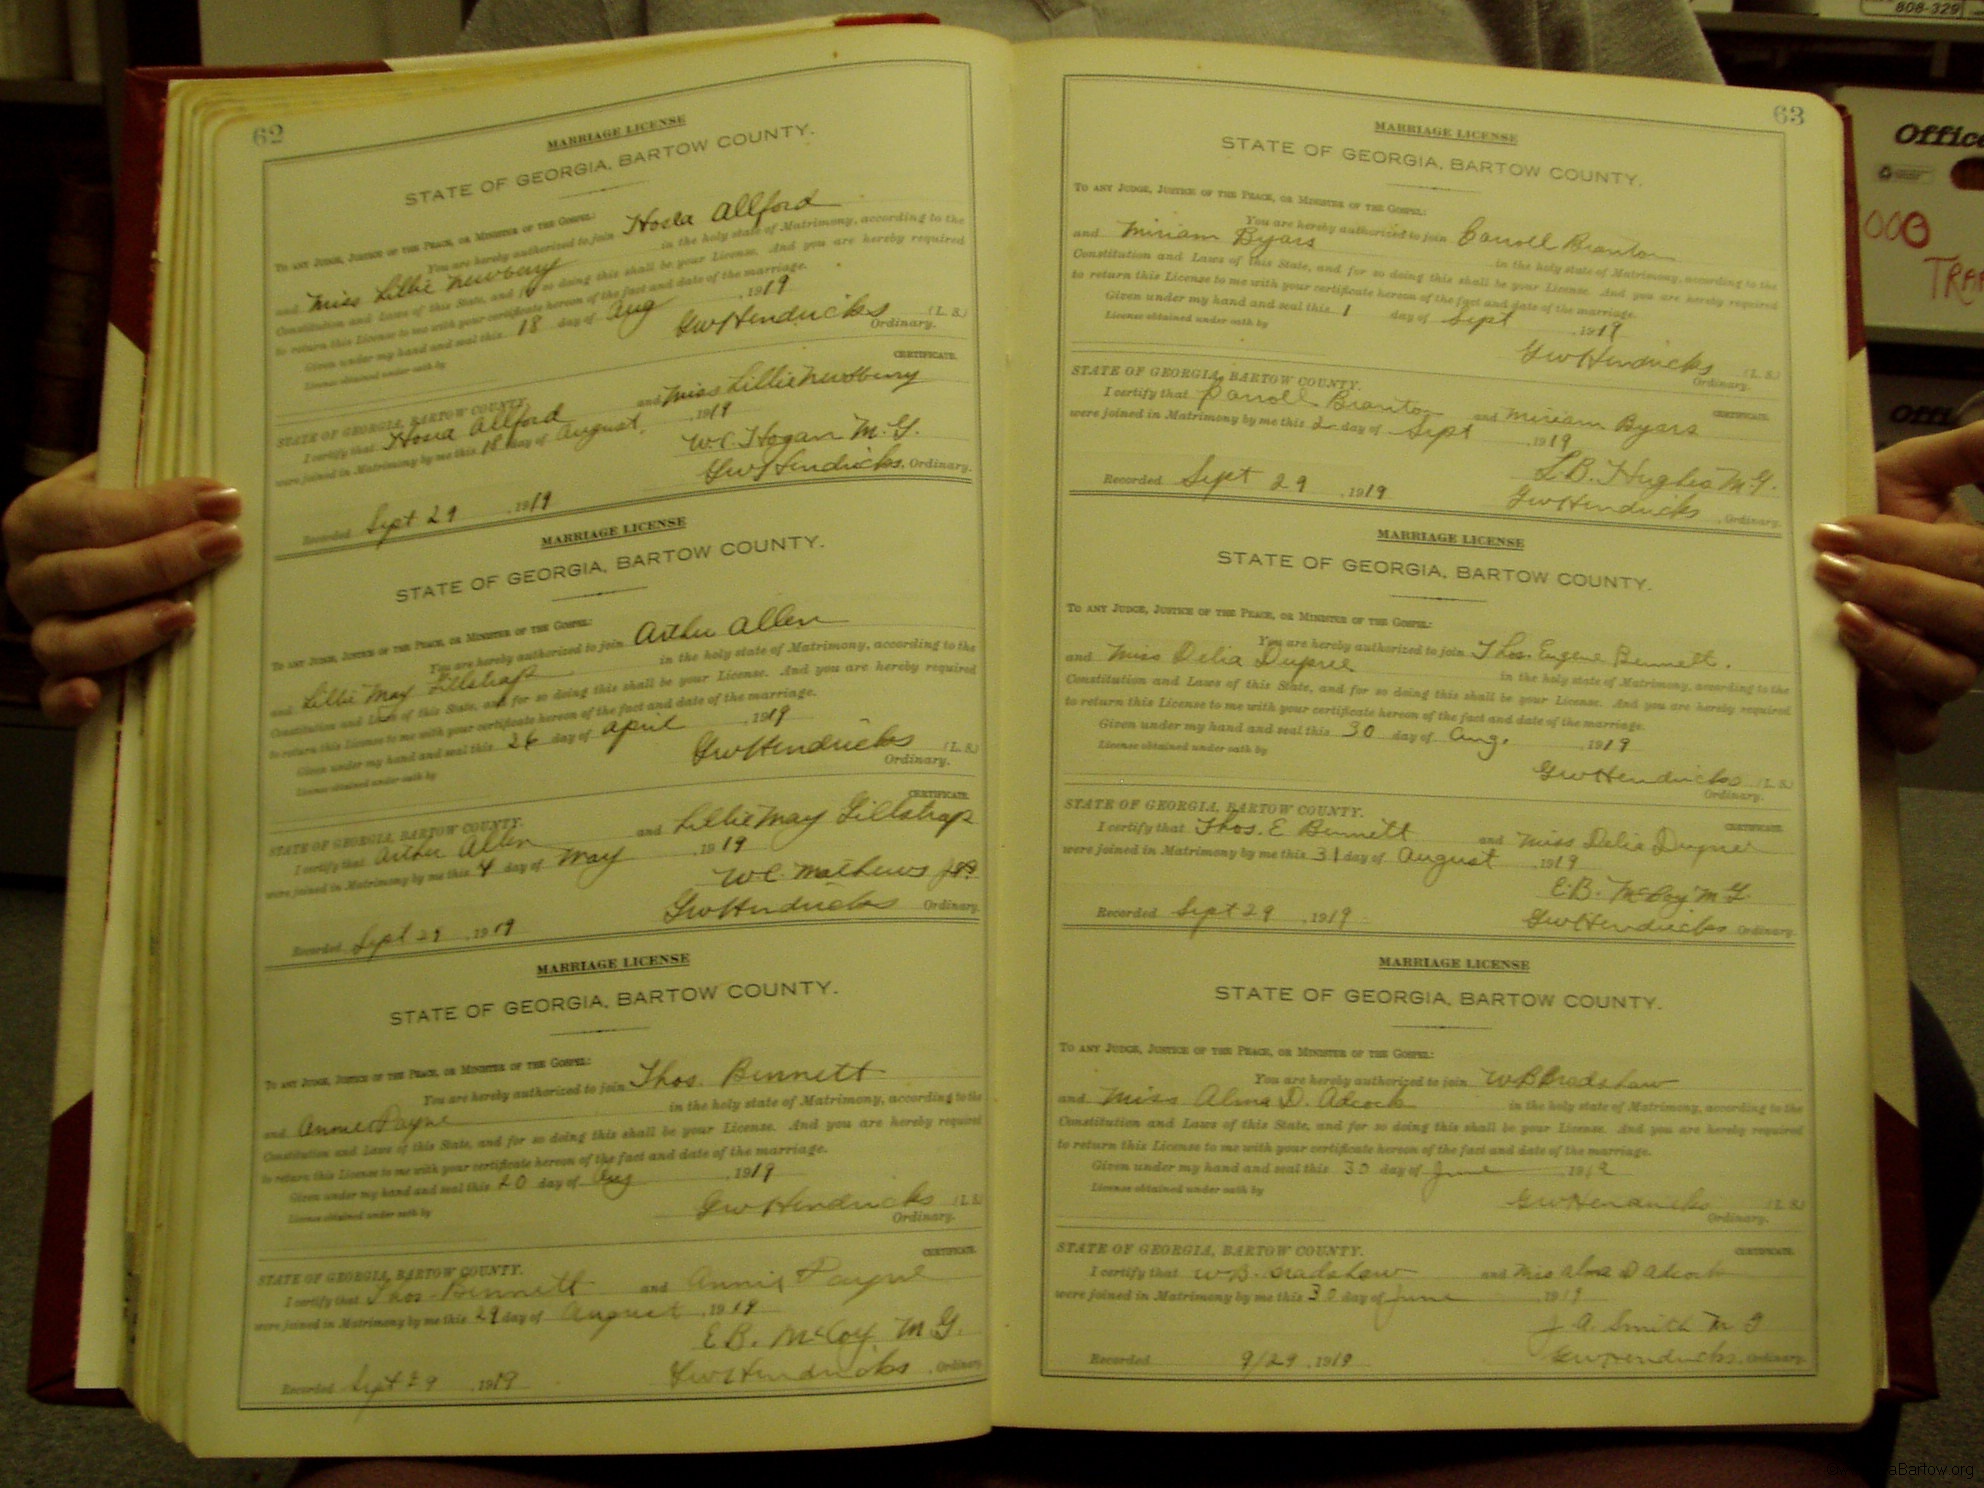 62
MARRIAGE LICENSE
STATE OF GEORGIA, BARTOW COUNTY.
TO ANY JUDGE, JUSTICE OF THE PEACE, OR MINISTER OF THE GOSPEL:
You are hereby authorized to join Hosea Allford
and Miss Lillie Newberry in the holy state of Matrimony, according to the
Constitution and Laws of this State, and for so doing this shall be your License. And you are hereby required
to return this License to me with your certificate hereon of the fact and date of the marriage.
Given under my hand and seal this 18 day of Aug , 1919
License obtained under oath by
GW Hendricks (L. S.)
Ordinary.
CERTIFICATE.
STATE OF GEORGIA, BARTOW COUNTY.
I certify that Hosea Allford and Miss Lillie Newberry
were joined in Matrimony by me this 18 day of August, , 1919
W.C. Hogan M.G.
Recorded Sept 29 , 1919 GW Hendricks, Ordinary.
MARRIAGE LICENSE
STATE OF GEORGIA, BARTOW COUNTY.
TO ANY JUDGE, JUSTICE OF THE PEACE, OR MINISTER OF THE GOSPEL:
You are hereby authorized to join Arthur Allen
and Lillie May Gillstrap in the holy state of Matrimony, according to the
Constitution and Laws of this State, and for so doing this shall be your License. And you are hereby required
to return this License to me with your certificate hereon of the fact and date of the marriage.
Given under my hand and seal this 26 day of April , 1919
License obtained under oath by
GW Hendricks (L. S.)
Ordinary.
CERTIFICATE.
STATE OF GEORGIA, BARTOW COUNTY.
I certify that Arthur Allen and Lillie May Gillstrap
were joined in Matrimony by me this 4 day of May , 1919
W.C. Mathews J.P.
Recorded Sept 29 , 1919 GW Hendricks Ordinary.
MARRIAGE LICENSE
STATE OF GEORGIA, BARTOW COUNTY.
TO ANY JUDGE, JUSTICE OF THE PEACE, OR MINISTER OF THE GOSPEL:
You are hereby authorized to join Thos. Bennett
and Annie Payne in the holy state of Matrimony, according to the
Constitution and Laws of this State, and for so doing this shall be your License. And you are hereby required
to return this License to me with your certificate hereon of the fact and date of the marriage.
Given under my hand and seal this 20 day of Aug , 1919
License obtained under oath by
GW Hendricks (L. S.)
Ordinary.
CERTIFICATE.
STATE OF GEORGIA, BARTOW COUNTY.
I certify that Thos. Bennett and Annie Payne
were joined in Matrimony by me this 29 day of August , 1919
E.B. McCoy, M.G.
Recorded Sept 29 , 1919 GW Hendricks , Ordinary
63
MARRIAGE LICENSE
STATE OF GEORGIA, BARTOW COUNTY.
TO ANY JUDGE, JUSTICE OF THE PEACE, OR MINISTER OF THE GOSPEL:
You are hereby authorized to join Carroll Branton
and Miriam Byars in the holy state of Matrimony, according to the
Constitution and Laws of this State, and for so doing this shall be your License. And you are hereby required
to return this License to me with your certificate hereon of the fact and date of the marriage.
Given under my hand and seal this 1 day of Sept , 1919
License obtained under oath by
GW Hendricks (L. S.)
Ordinary.
STATE OF GEORGIA, BARTOW COUNTY.
CERTIFICATE.
I certify that Carroll Branton and Miriam Byars
were joined in Matrimony by me this 2 day of Sept , 1919
L.B. Hughes M.G.
Recorded Sept 29 , 1919 GW Hendricks , Ordinary.
MARRIAGE LICENSE
STATE OF GEORGIA, BARTOW COUNTY.
TO ANY JUDGE, JUSTICE OF THE PEACE, OR MINISTER OF THE GOSPEL:
You are hereby authorized to join Thos. Eugene Bennett.
and Miss Delia Dupree in the holy state of Matrimony, according to the
Constitution and Laws of this State, and for so doing this shall be your License. And you are hereby required
to return this License to me with your certificate hereon of the fact and date of the marriage.
Given under my hand and seal this 30 day of Aug. , 1919
License obtained under oath by
GW Hendricks (L. S.)
Ordinary.
STATE OF GEORGIA, BARTOW COUNTY.
CERTIFICATE.
I certify that Thos. E. Bennett and Miss Delia Dupree
were joined in Matrimony by me this 31 day of August , 1919
E.B. McCoy M.G.
Recorded Sept 29 , 1919 GW Hendricks Ordinary.
MARRIAGE LICENSE
STATE OF GEORGIA, BARTOW COUNTY.
TO ANY JUDGE, JUSTICE OF THE PEACE, OR MINISTER OF THE GOSPEL:
You are hereby authorized to join W B Bradshaw
and Miss Alma D. Adcock in the holy state of Matrimony, according to the
Constitution and Laws of this State, and for so doing this shall be your License. And you are hereby required
to return this License to me with your certificate hereon of the fact and date of the marriage.
Given under my hand and seal this 30 day of June 1919
License obtained under oath by
GW Hendricks (L. S.)
Ordinary.
STATE OF GEORGIA, BARTOW COUNTY.
CERTIFICATE.
I certify that W.B. Bradshaw and Miss Alma D Adcock
were joined in Matrimony by me this 30 day of June 1919
J.A. Smith M G
Recorded 9/29 , 1919 GW Hendricks, Ordinary.
808-329
Office
Offi
aBartow.org